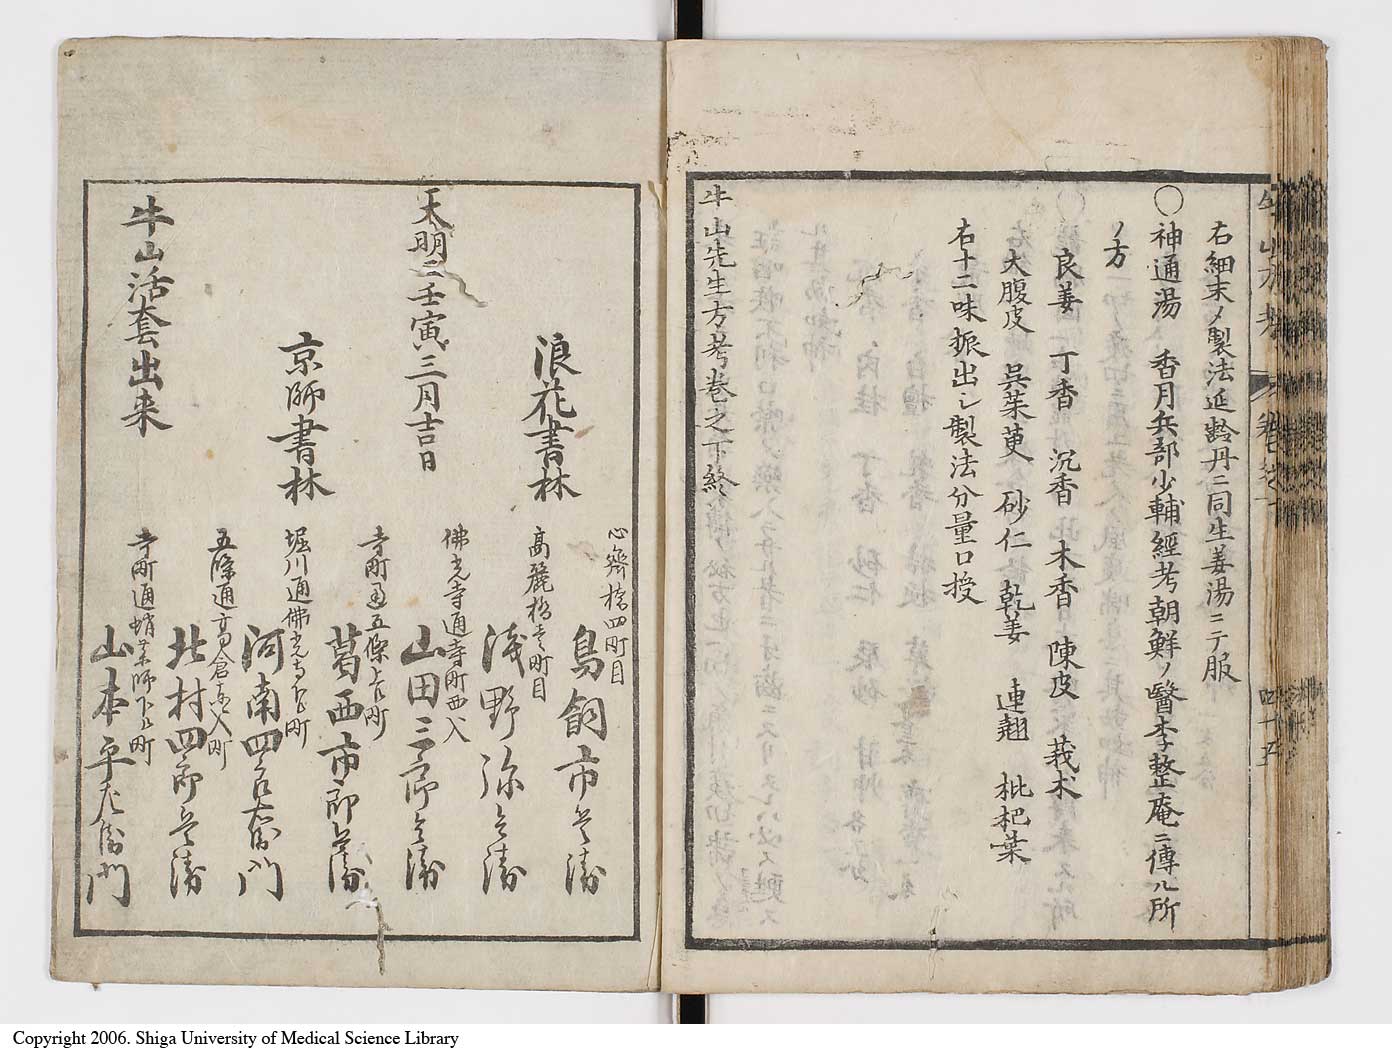 右細末ノ製法延齢丹ニ同生姜湯ニテ服
○神通湯 香月兵部少輔經考朝鮮ノ醫李整庵ニ傳ル所
ノ方
良姜 丁香 沉香 木香 陳皮 莪朮
大腹皮 呉茱萸 砂仁 乾姜 連翹 枇杷葉
右十二味振出シ製法分量口授
牛山先生方考巻之下終
四十五
天明二壬寅三月吉日
浪花書林
心齋橋四町目
鳥飼市兵衛
高麗橋壱町目
浅野弥兵衛
京師書林
佛光寺通寺町西入
山田三郎兵衛
寺町通五條上ル町
葛西市郎兵衛
堀川通佛光寺下ル町
河南四郎右衛門
五條通高倉東入町
北村四郎兵衛
寺町通蛸薬師下ル町
山本平左衛門
牛山活套出来
Copyright 2006. Shiga University of Medical Science Library